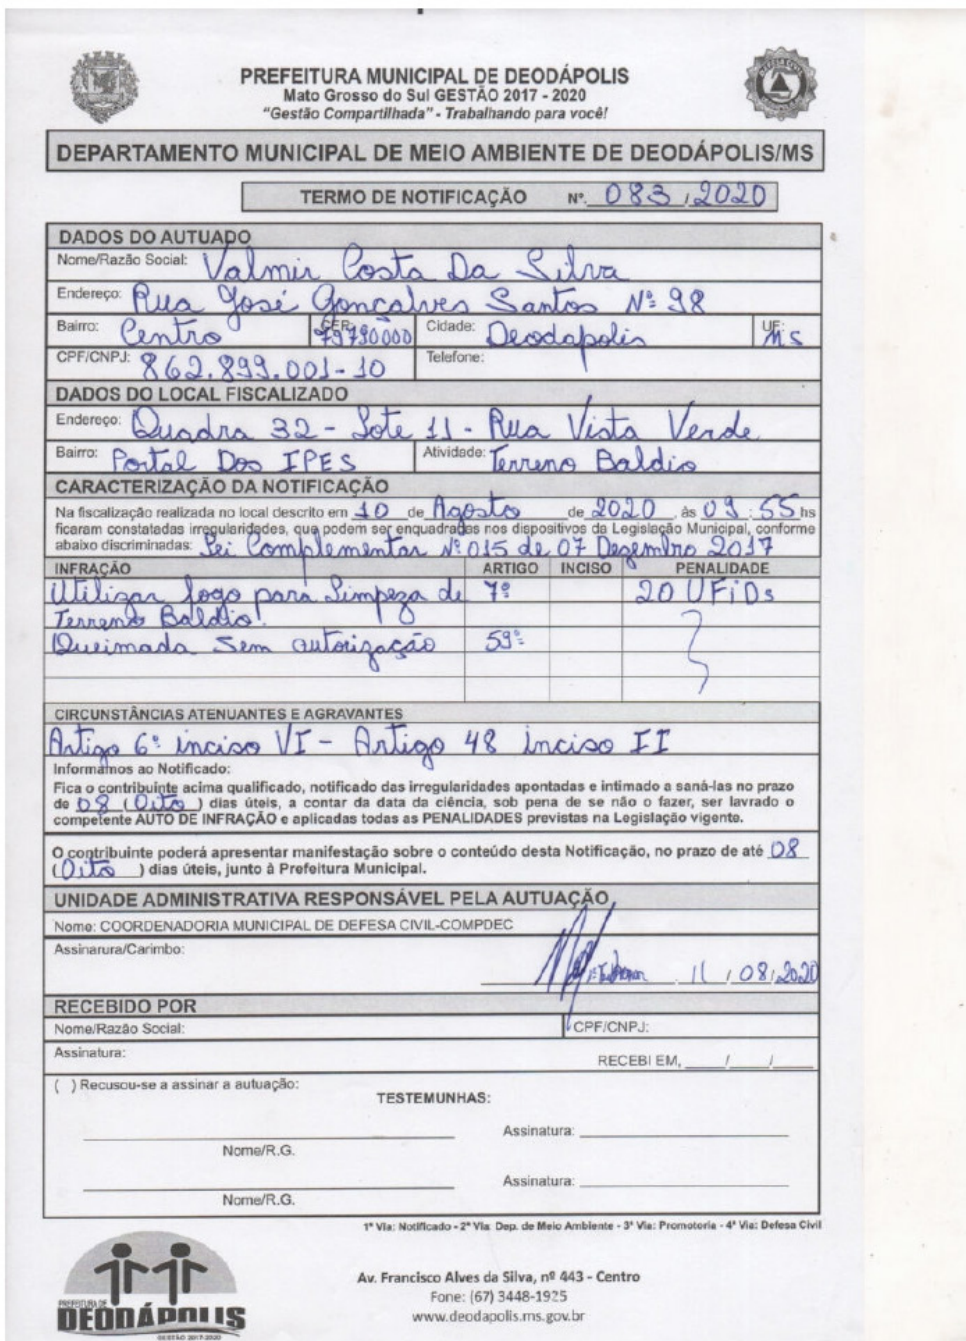 PREFEITURA MUNICIPAL DE DEODÁPOLIS
Mato Grosso do Sul GESTÃO 2017 - 2020
"Gestão Compartilhada" - Trabalhando para você!
DEFESA CIVIL
DEPARTAMENTO MUNICIPAL DE MEIO AMBIENTE DE DEODÁPOLIS/MS
TERMO DE NOTIFICAÇÃO Nº. 083 / 2020
DADOS DO AUTUADO
Nome/Razão Social: Valmir Costa Da Silva
Endereço: Rua José Gonçalves Santos Nº 98
Bairro: Centro CEP: 79790000 Cidade: Deodapolis UF: MS
CPF/CNPJ: 862.899.001-10 Telefone:
DADOS DO LOCAL FISCALIZADO
Endereço: Quadra 32 - Lote 11 - Rua Vista Verde
Bairro: Portal Dos IPES Atividade: Terreno Baldio
CARACTERIZAÇÃO DA NOTIFICAÇÃO
Na fiscalização realizada no local descrito em 10 de Agosto de 2020 às 09 : 55 hs
ficaram constatadas irregularidades, que podem ser enquadradas nos dispositivos da Legislação Municipal, conforme
abaixo discriminadas: Lei Complementar Nº 015 de 07 Dezembro 2017
INFRAÇÃO ARTIGO INCISO PENALIDADE
Utilizar fogo para Limpeza de 7º 20 UFiDs
Terreno Baldio!
Queimada Sem autorização 59º
CIRCUNSTÂNCIAS ATENUANTES E AGRAVANTES
Artigo 6º inciso VI - Artigo 48 inciso II
Informamos ao Notificado:
Fica o contribuinte acima qualificado, notificado das irregularidades apontadas e intimado a saná-las no prazo
de 08 ( Oito ) dias úteis, a contar da data da ciência, sob pena de se não o fazer, ser lavrado o
competente AUTO DE INFRAÇÃO e aplicadas todas as PENALIDADES previstas na Legislação vigente.
O contribuinte poderá apresentar manifestação sobre o conteúdo desta Notificação, no prazo de até 08
( Oito ) dias úteis, junto à Prefeitura Municipal.
UNIDADE ADMINISTRATIVA RESPONSÁVEL PELA AUTUAÇÃO
Nome: COORDENADORIA MUNICIPAL DE DEFESA CIVIL-COMPDEC
Assinarura/Carimbo:
11 / 08 / 2020
RECEBIDO POR
Nome/Razão Social: CPF/CNPJ:
Assinatura: RECEBI EM, ____/____/____
( ) Recusou-se a assinar a autuação:
TESTEMUNHAS:
Assinatura:
Nome/R.G.
Assinatura:
Nome/R.G.
1ª Via: Notificado - 2ª Via: Dep. de Meio Ambiente - 3ª Via: Promotoria - 4ª Via: Defesa Civil
PREFEITURA DE
DEODÁPOLIS
GESTÃO 2017-2020
Av. Francisco Alves da Silva, nº 443 - Centro
Fone: (67) 3448-1925
www.deodapolis.ms.gov.br